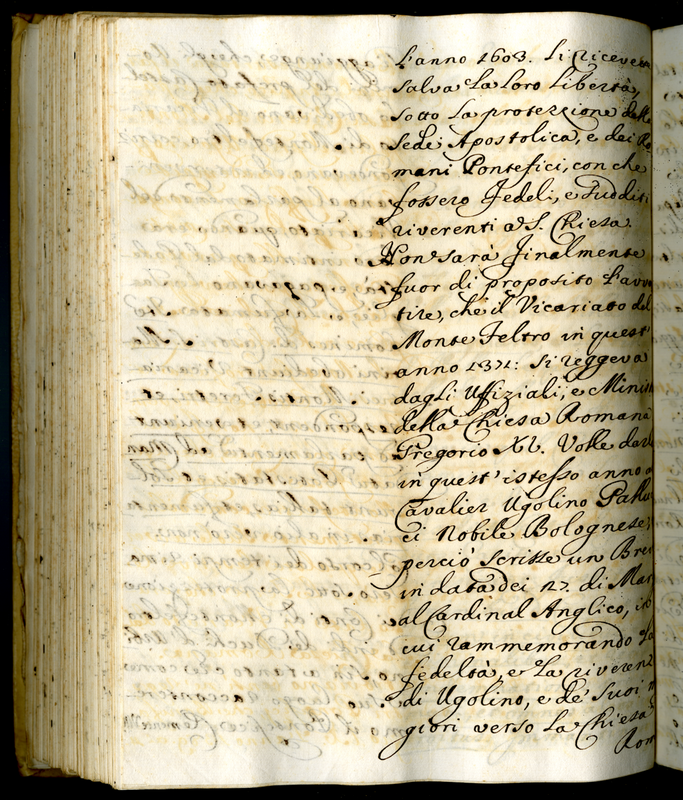 L'anno 1603. li riceveva
salva La Loro Libertà,
sotto La protezzione della
Sede Apostolica, e dei Ro=
mani Pontefici, con che
fossero Fedeli, e sudditi
riverenti a S. Chiesa.
Non sarà finalmente
fuor di proposito L'avver
tire, che il Vicariato del
Monte Feltro in quest'
anno 1371: si reggeva
dagli Uffiziali, e Minis
della Chiesa Romana
Gregorio XI. Volle darl
in quest' istesso anno a
Cavalier Ugolino Pallu
ci Nobile Bolognese;
perciò scrisse un Brev
in data dei 27. di Mar
al Cardinal Anglico, in
cui rammemorando La
fedeltà, e La riverenz
di Ugolino, e de' Suoi m
giori verso La Chiesa
Rom